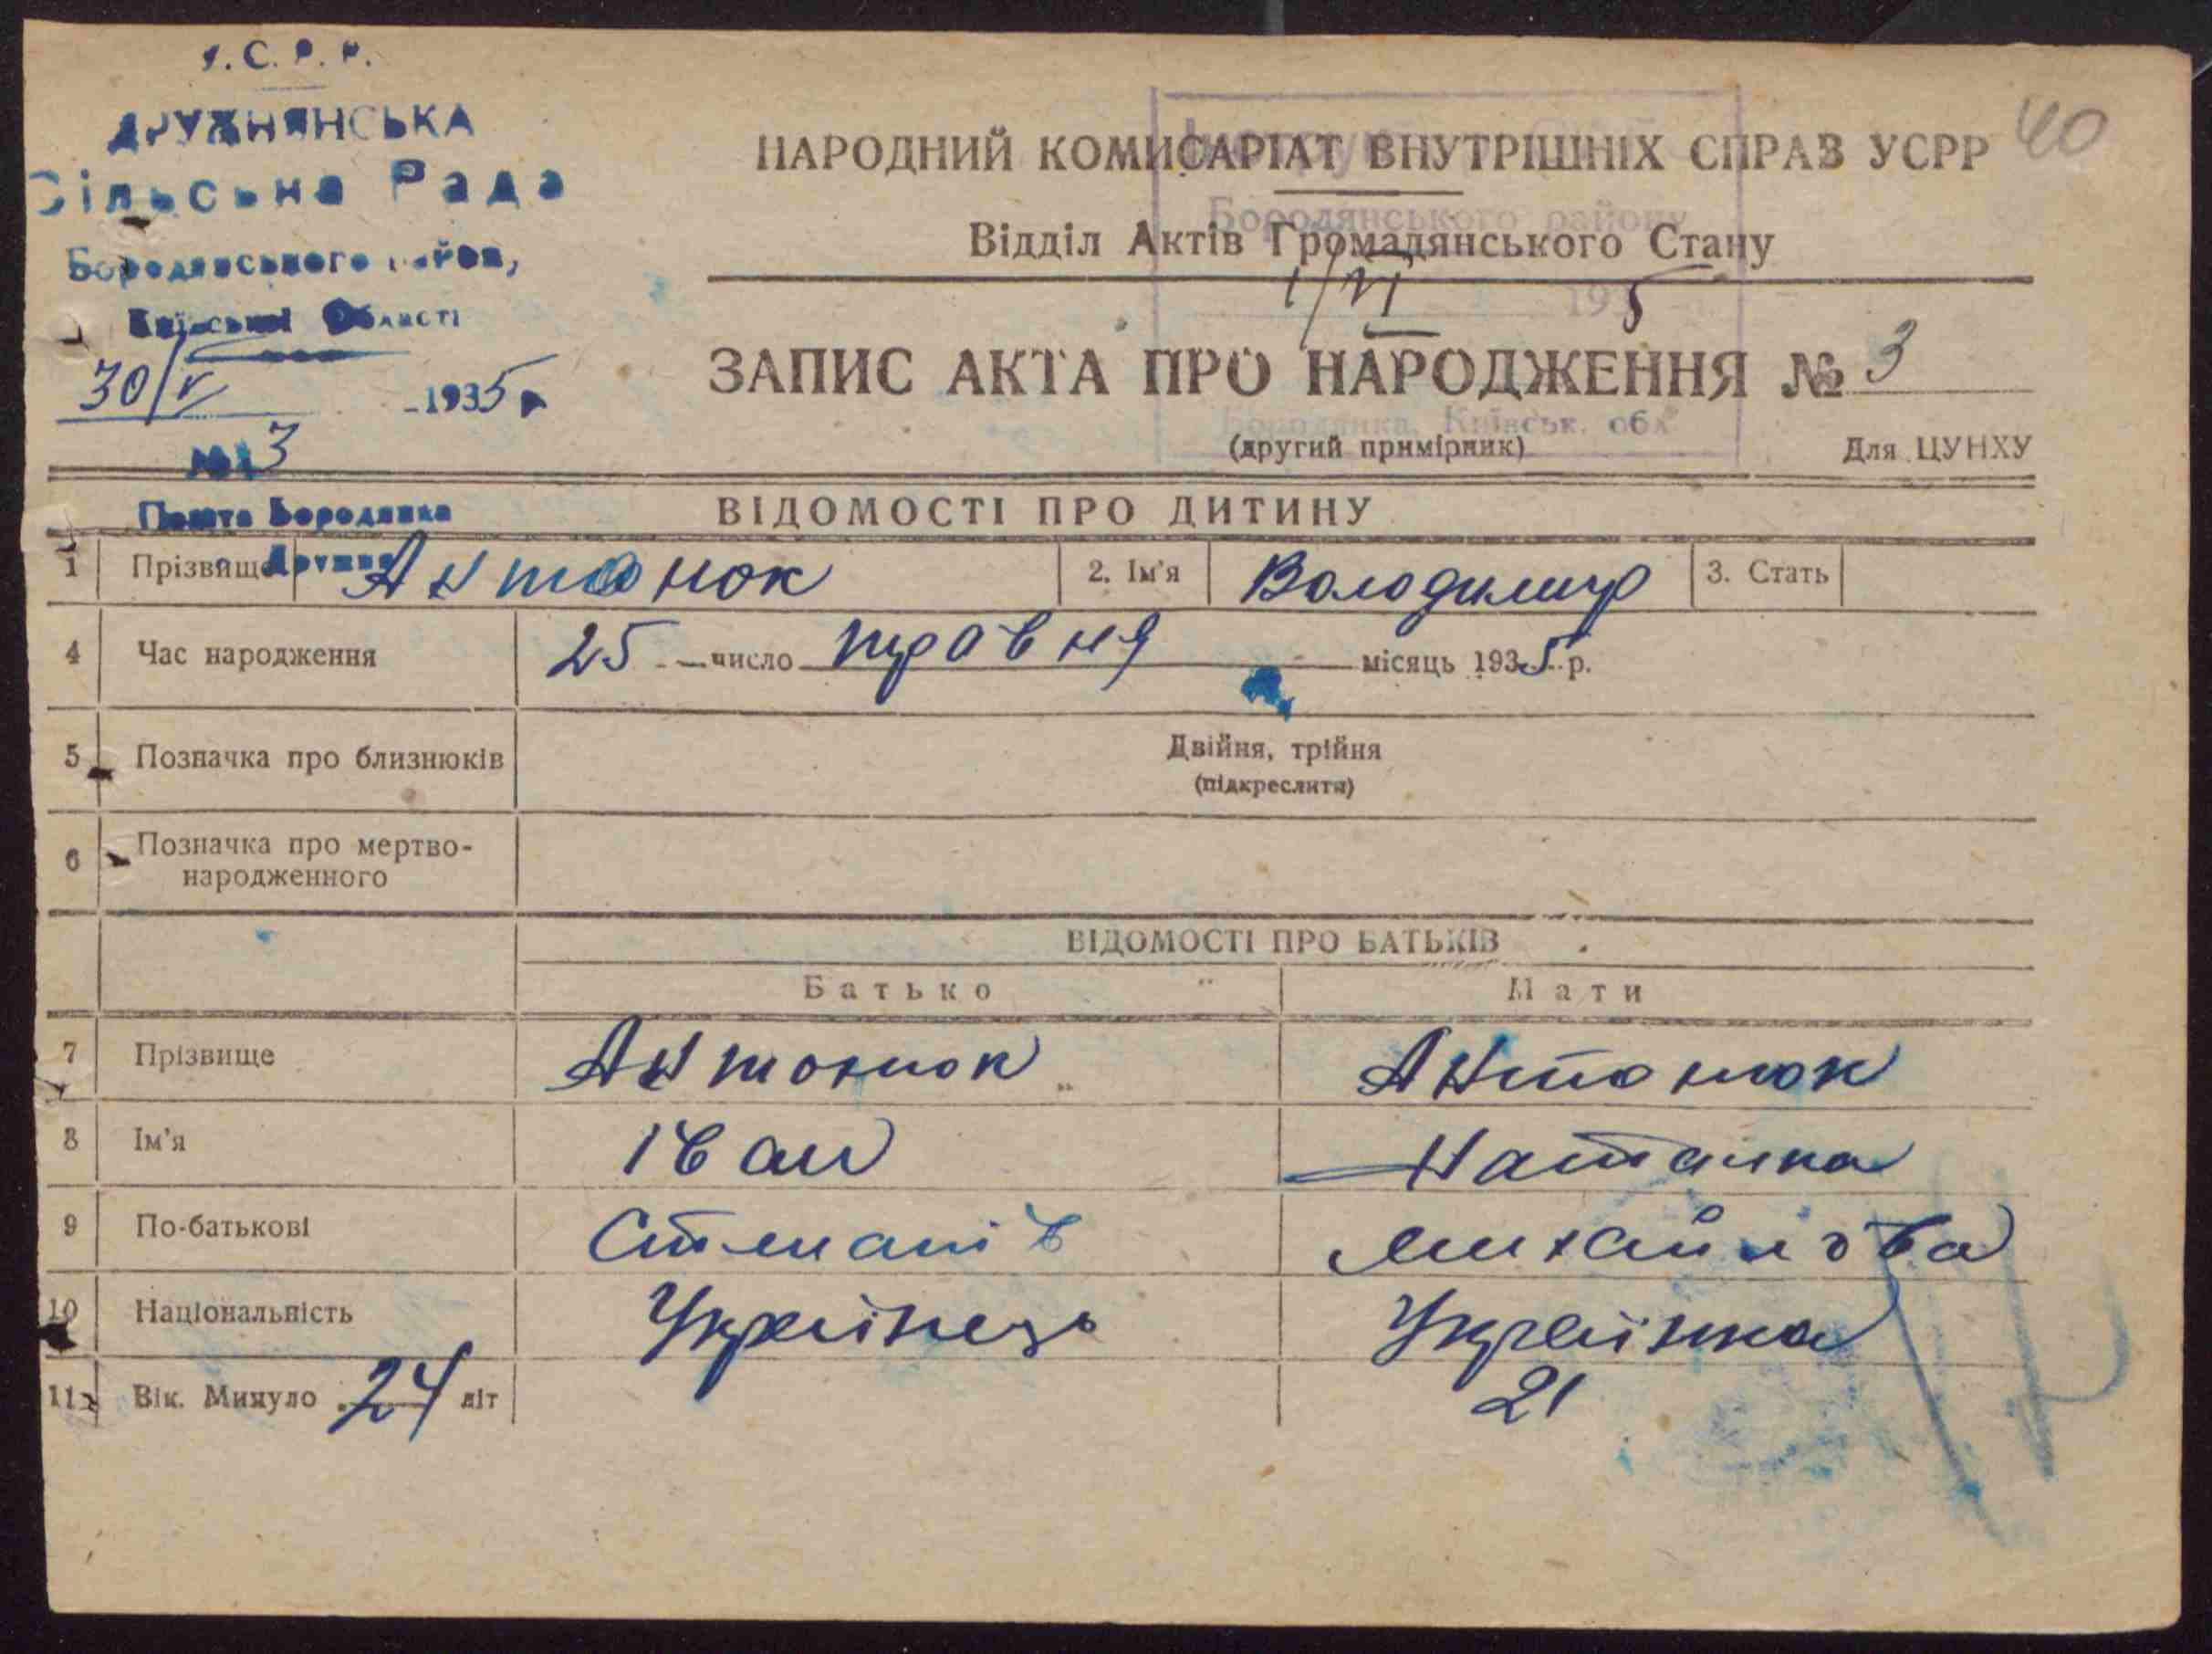 У.С.Р.Р.
ДРУЖНЯНСЬКА
Сільська Рада
Бородянського
Київської Області
30/V 1935 р
№ 3
Пошта Бородянка
Дружня
40
НАРОДНИЙ КОМИСАРІАТ ВНУТРІШНІХ СПРАВ УСРР
Бородянського району
Відділ Актів Громадянського Стану
1/VI 1935
ЗАПИС АКТА ПРО НАРОДЖЕННЯ № 3
Бородянка, Київськ. обл
(другий примірник)
Для ЦУНХУ
ВІДОМОСТІ ПРО ДИТИНУ
1 Прізвище Антонюк 2. Ім'я Володимир 3. Стать
4 Час народження 25 число травня місяць 1935 р.
5 Позначка про близнюків Двійня, трійня
(підкреслити)
6 Позначка про мертво-
народженного
ВІДОМОСТІ ПРО БАТЬКІВ
Батько Мати
7 Прізвище Антонюк Антонюк
8 Ім'я Іван Наталка
9 По-батькові Степанів Михайлова
10 Національність Українець Українка
11 Вік. Минуло 24 літ 21